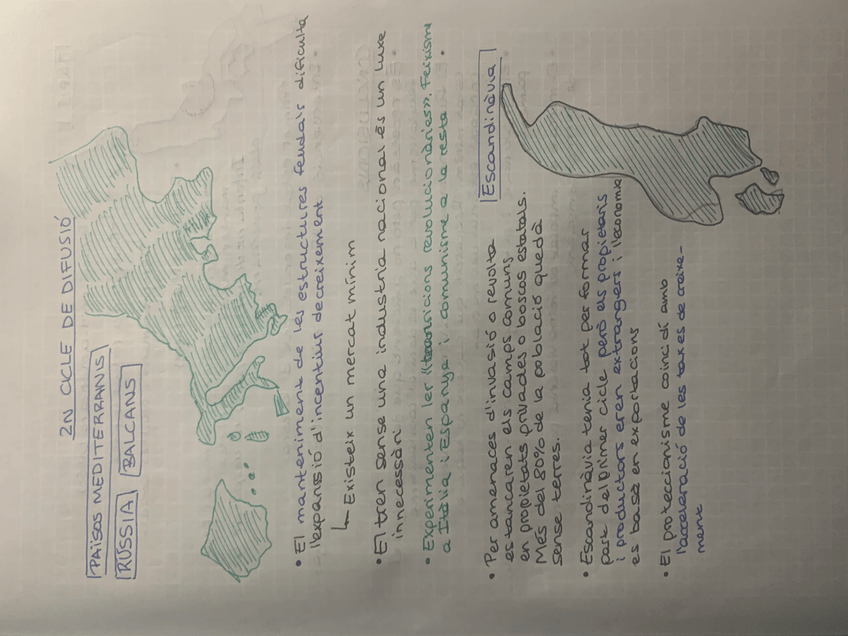 2N CICLE DE DIFUSIÓ
PAÏSOS MEDITERRANIS
RÚSSIA
BALCANS
• El manteniment de les estructures feudals dificulta
l'expansió d'incentius decreixement.
Existeix un mercat mínim
• El tren sense una industria nacional és un luxe
innecessàri.
• Experimenten ler «transicions revolucionàries». Feixisme
a Itàlia i Espanya i comunisme a la resta
Escandinàvia
• Per amenaces d'invasió o revolta
es tancaren els camps comuns
en propietats privades o boscos estatals.
Més del 80% de la població quedà
sense terres.
• Escandinàvia tenia tot per formar
part del primer cicle però els propietaris
i productors eren extrangers i l'economia
es basà en exportacions
• El proteccionisme coincidí amb
l'acceleració de les taxes de creixe-
ment